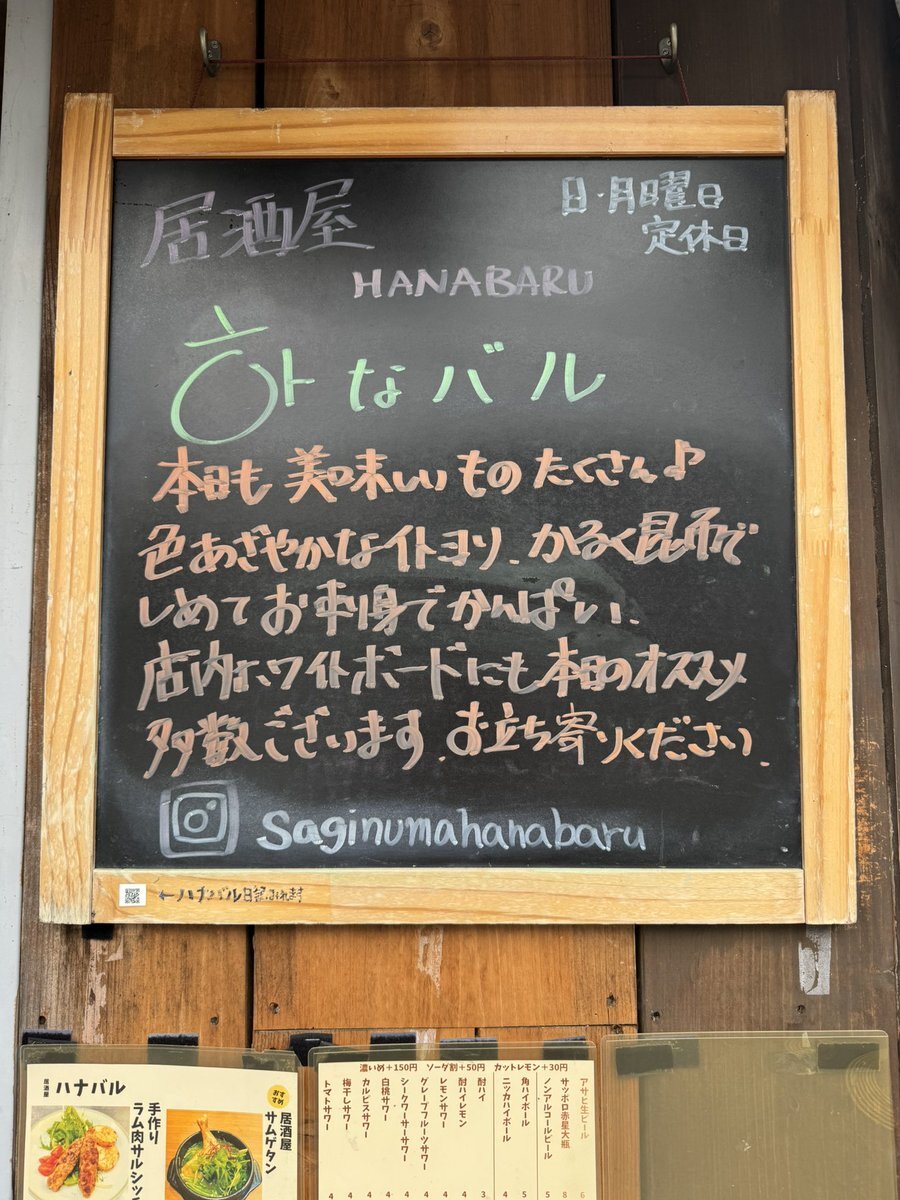 居酒屋
日・月曜日
定休日
HANABARU
하なバル
本日も美味しいものたくさん♪
色あざやかなイトヨリ、かるく昆布で
しめてお刺身でかんぱい、
店内ホワイトボードにも本日のオススメ
多数ございます、お立ち寄りください、
saginumahanabaru
居酒屋 ハナバル
手作り
ラム肉サルシッ
おすすめ
居酒屋
サムゲタン
濃いめ+150円 ソーダ割+50円 カットレモン+30円
アサヒ生ビール 6
サッポロ赤星大瓶 8
ノンアルコールビール 5
角ハイボール 5
ニッカハイボール 4
酎ハイ 3
酎ハイレモン 4
レモンサワー 4
グレープフルーツサワー 4
シークワーサーサワー 4
白桃サワー 4
カルピスサワー 4
梅干しサワー 4
トマトサワー 4